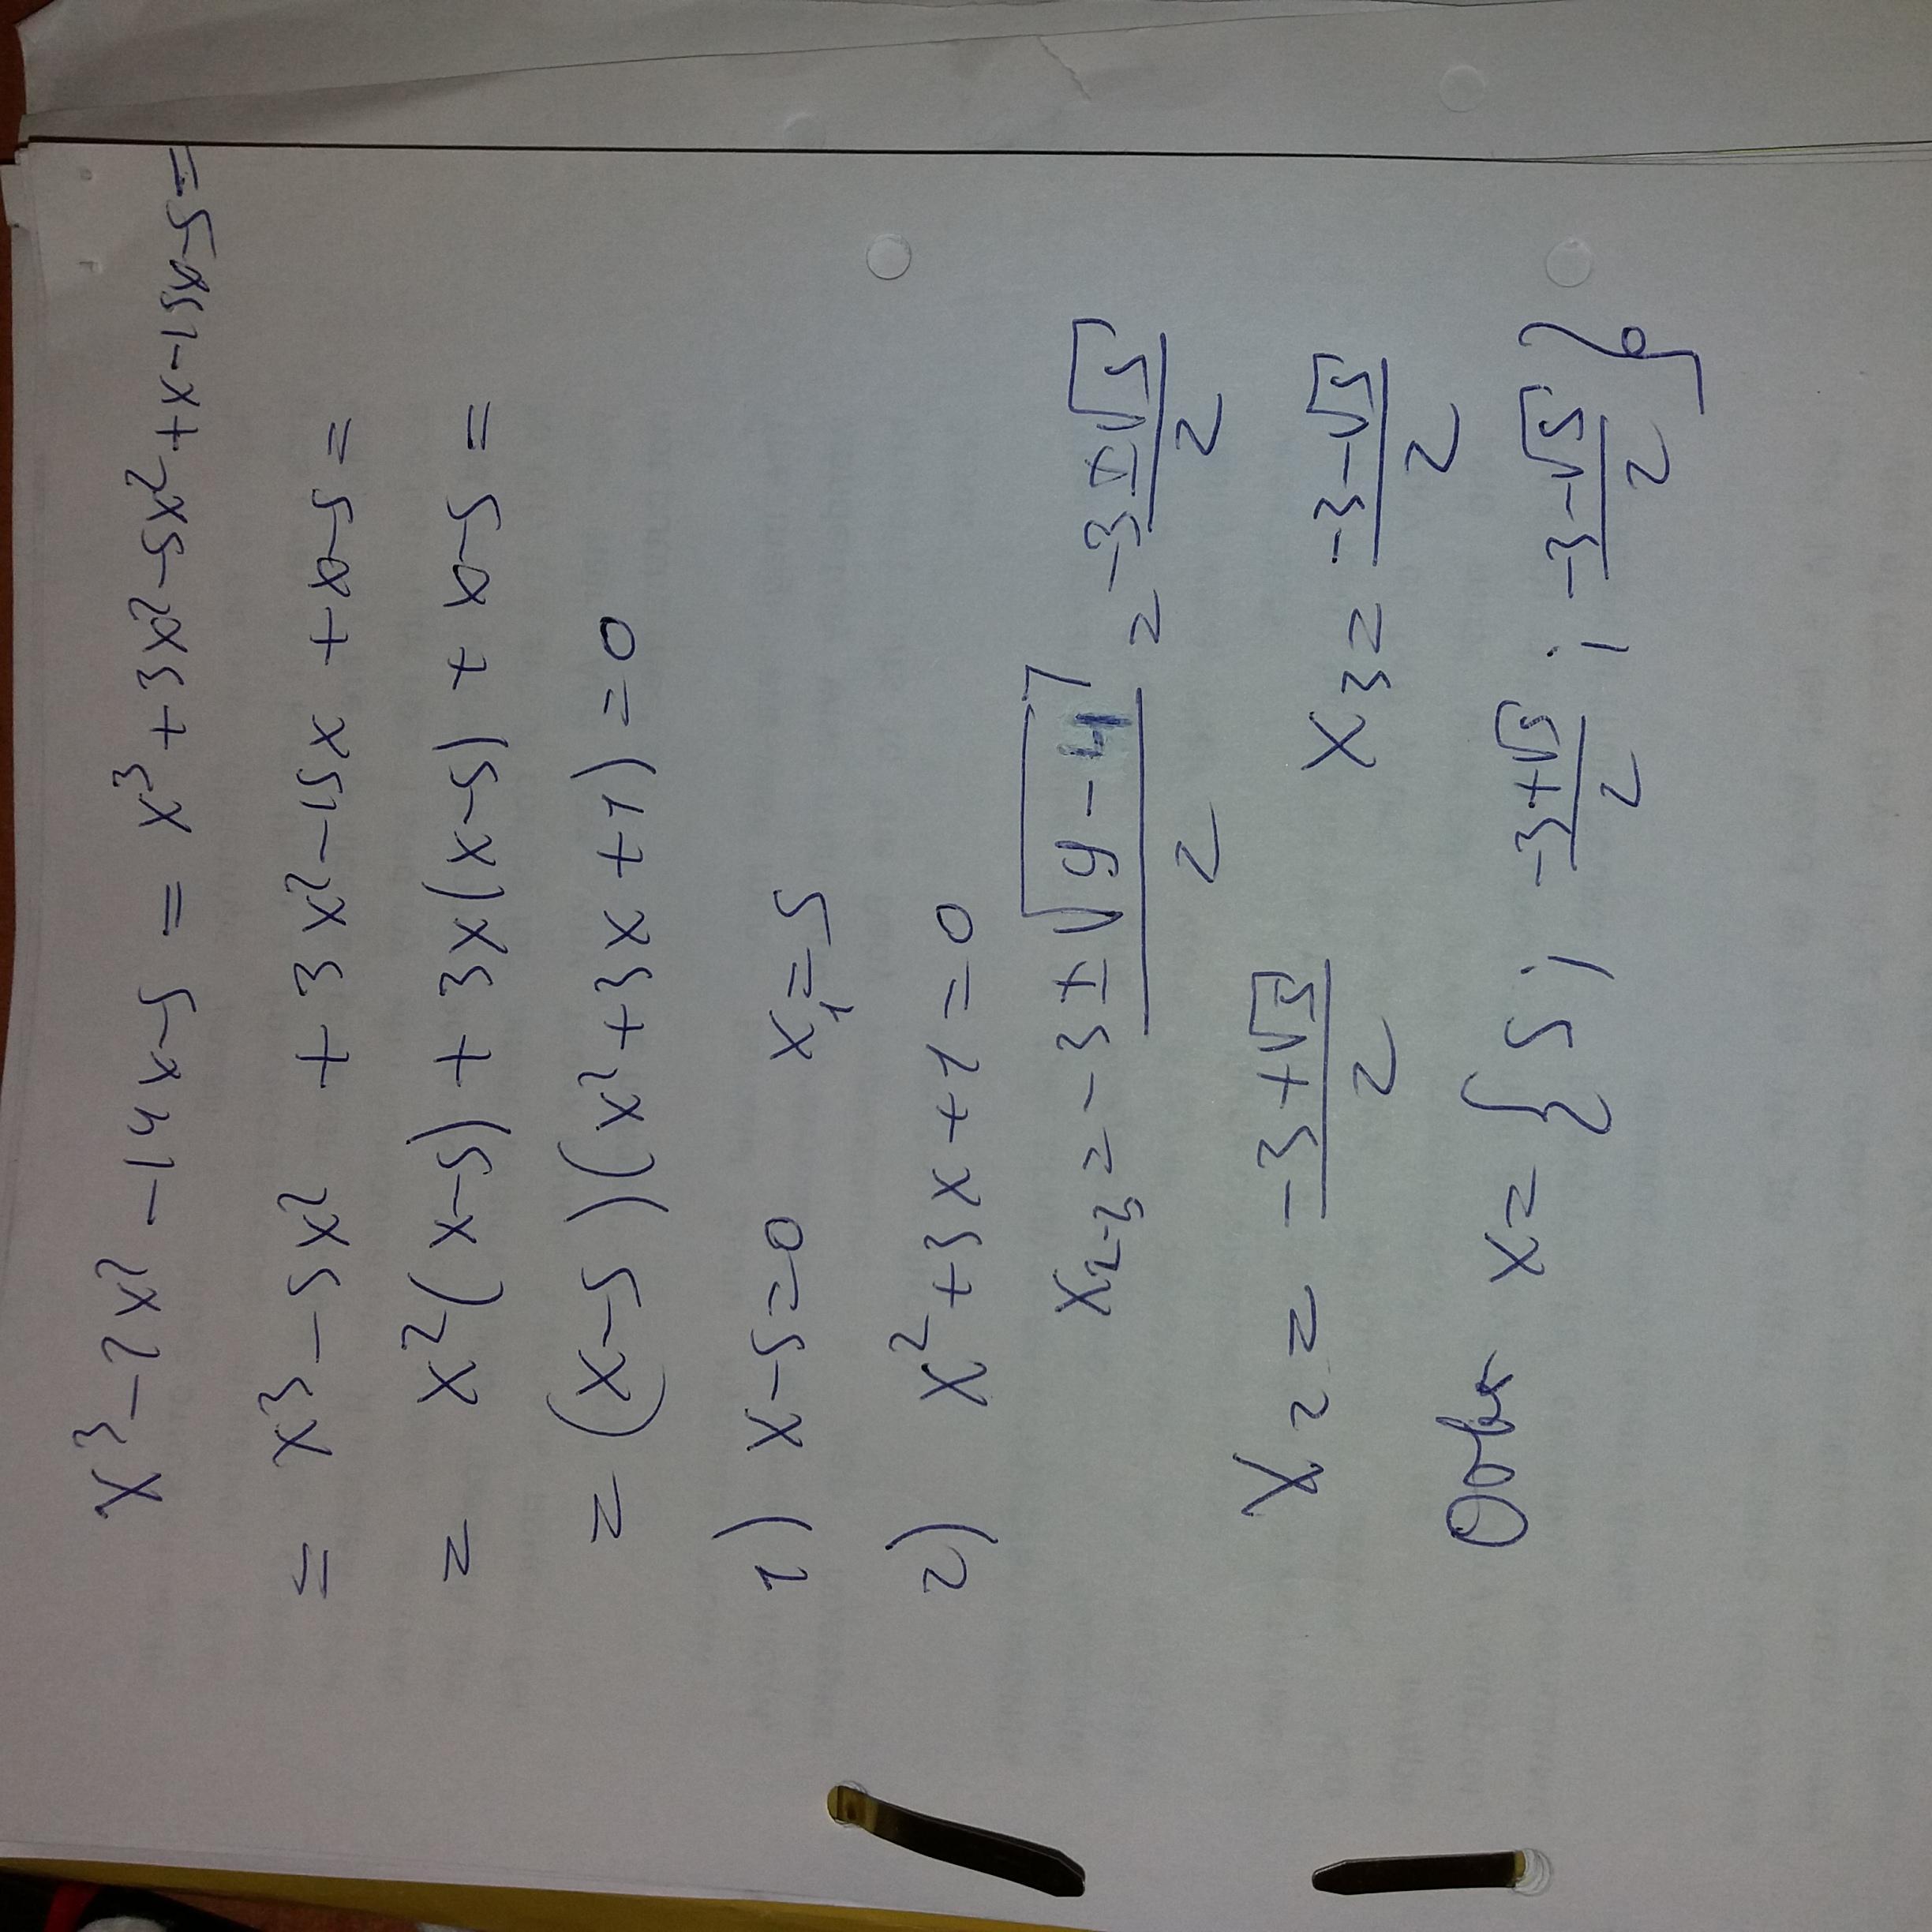 x³ - 2x² - 14x - 5 = x³ + 3x² - 5x² + x - 15x - 5 =
= x³ - 5x² + 3x² - 15x + x - 5 =
= x²(x-5) + 3x(x-5) + x-5 =
= (x-5)(x²+3x+1) = 0
1) x-5=0 x₁=5
2) x²+3x+1=0
x₂₋₃ = (-3 ± √(9-4))/2 = (-3 ± √5)/2
x₂ = (-3+√5)/2 x₃ = (-3-√5)/2
x = {5; (-3+√5)/2; (-3-√5)/2}